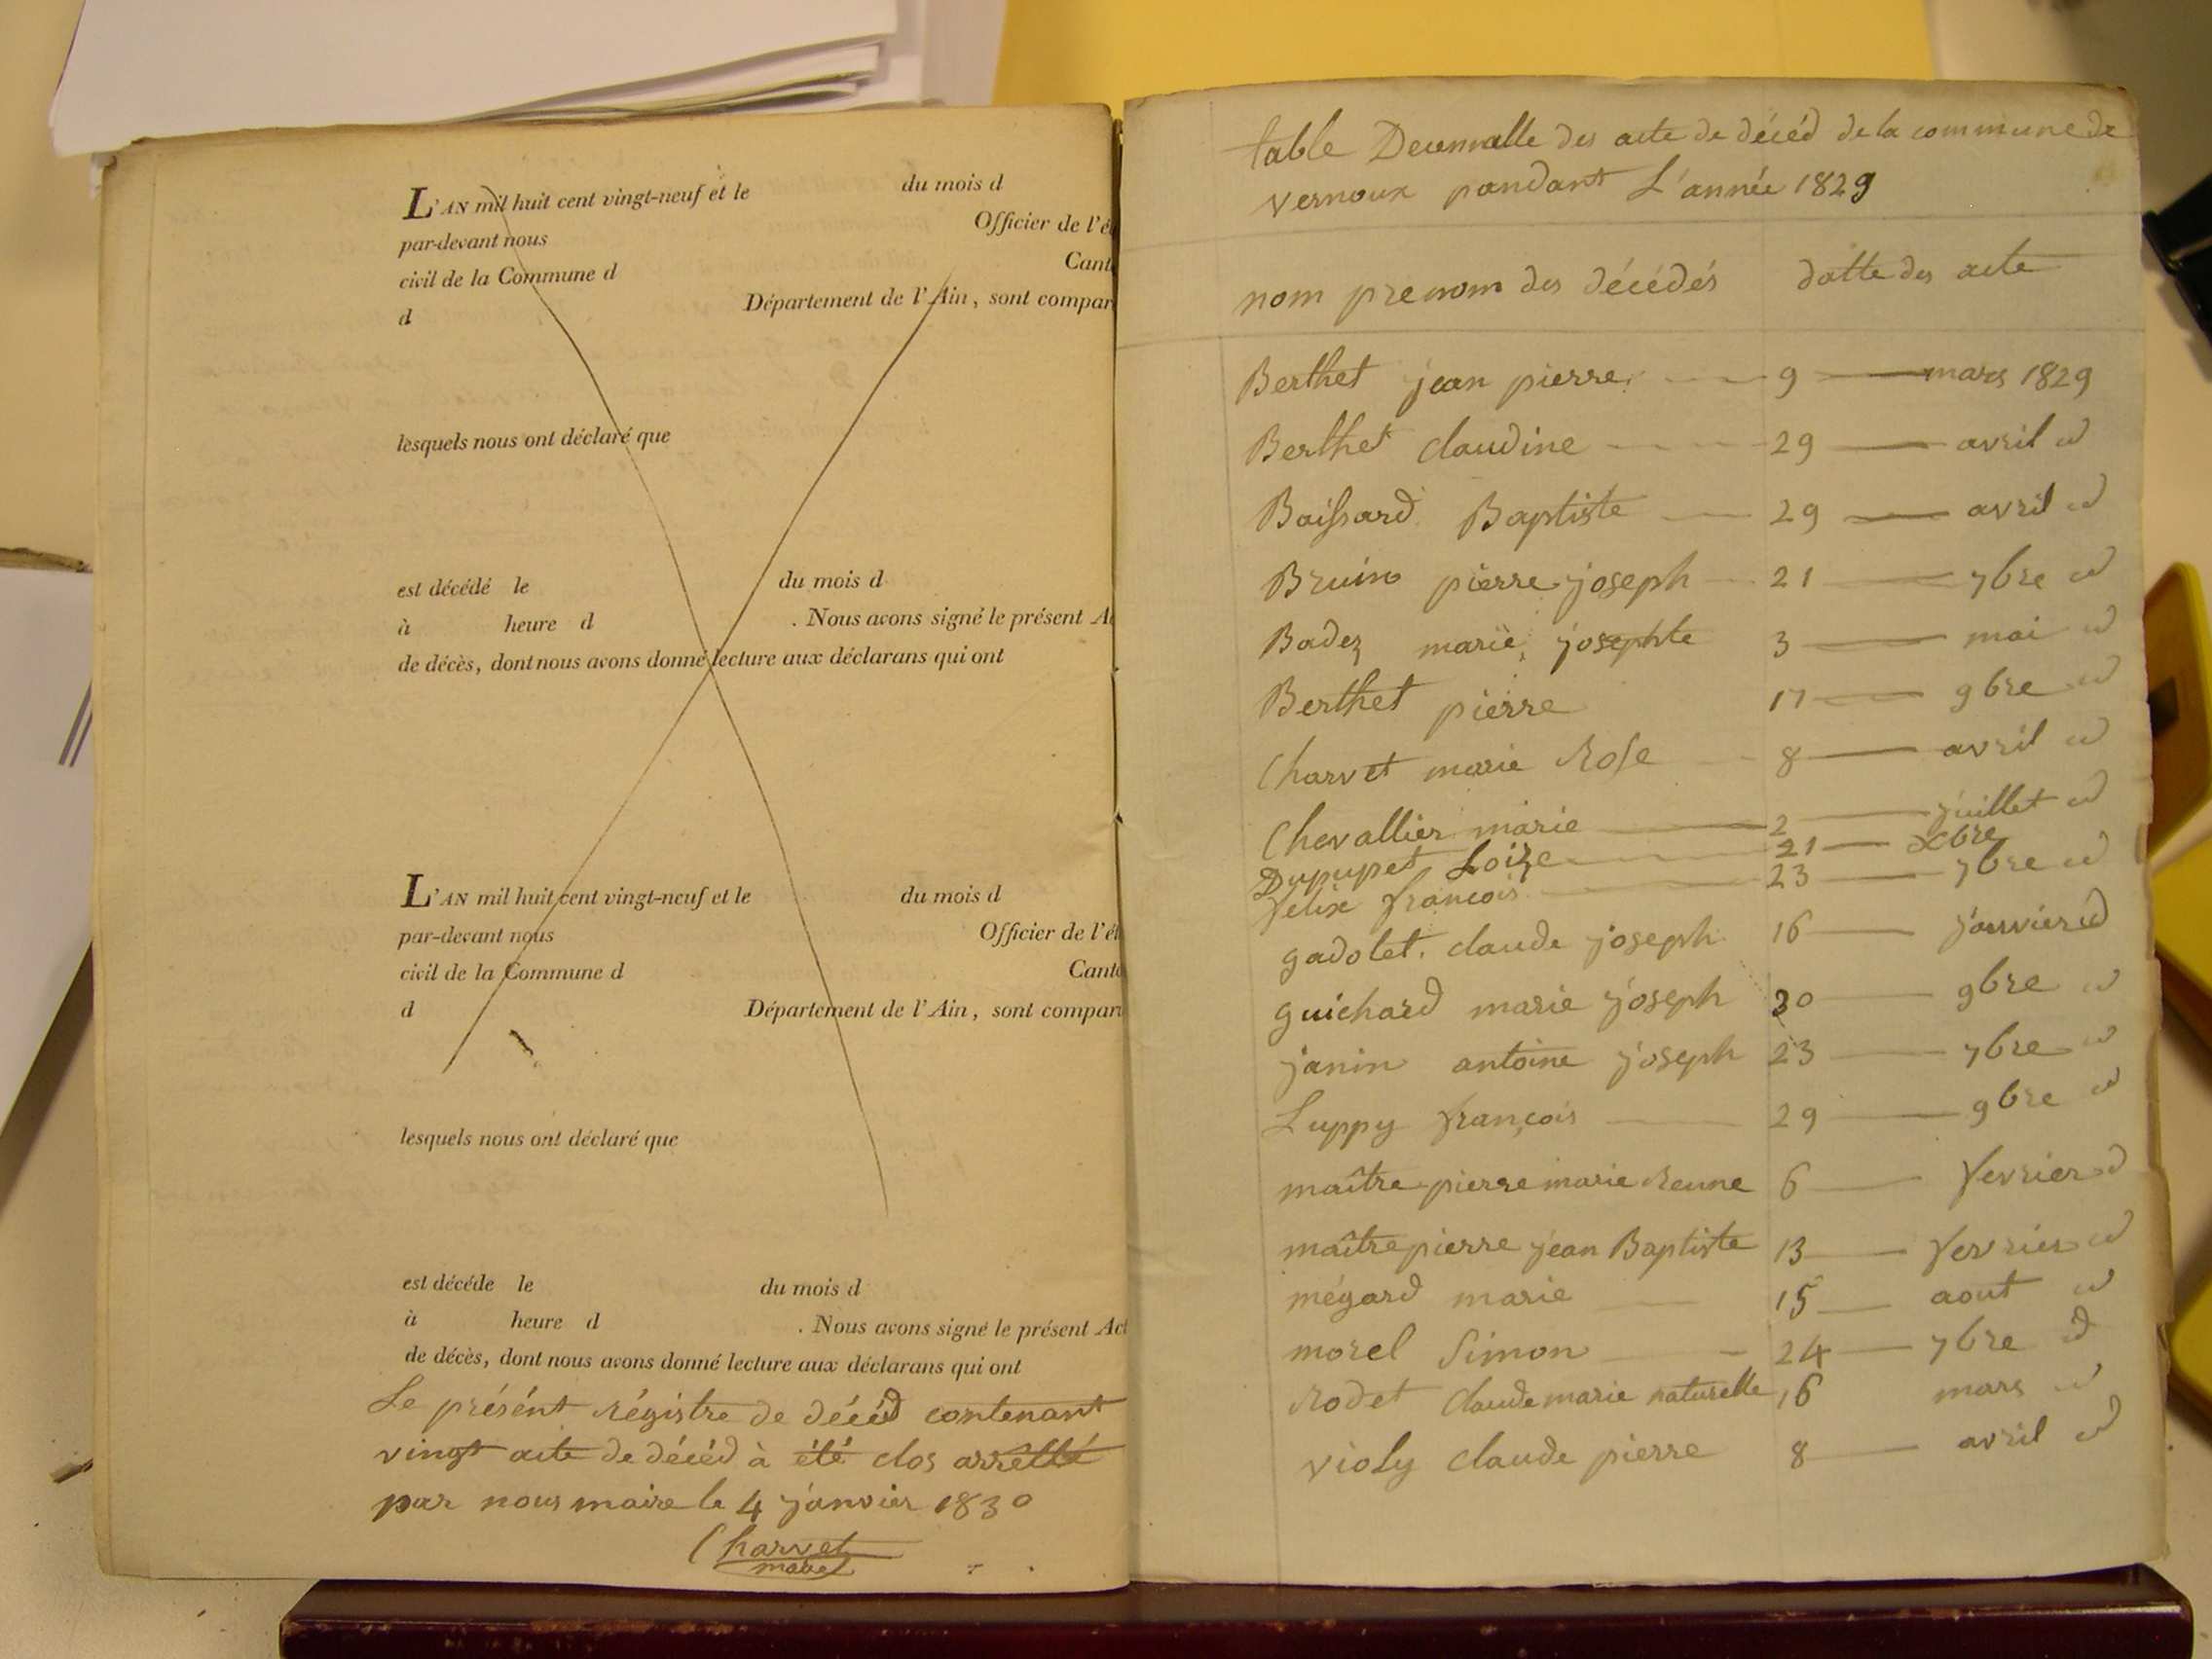 L'AN mil huit cent vingt-neuf et le du mois d
par-devant nous Officier de l'é
civil de la Commune d Cant
d Département de l'Ain, sont compar
lesquels nous ont déclaré que
est décédé le du mois d
à heure d . Nous avons signé le présent A
de décès, dont nous avons donné lecture aux déclarans qui ont
L'AN mil huit cent vingt-neuf et le du mois d
par-devant nous Officier de l'ét
civil de la Commune d Canto
d Département de l'Ain, sont compar
lesquels nous ont déclaré que
est décéde le du mois d
à heure d . Nous avons signé le présent Act
de décès, dont nous avons donné lecture aux déclarans qui ont
Le présént régistre de décéd contenant
vingt acte de décéd à été clos arrêtté
par nous maire le 4 janvier 1830
Charvet
maire
table Decennalle des acte de décéd de la commune de
vernoux pandant L'année 1829
nom prenom des décédés datte des acte
Berthet jean pierre 9 mars 1829
Berthet claudine 29 avril id
Boissard Baptiste 29 avril id
Bruin pierre joseph 21 7bre id
Badez marie josephte 3 mai id
Berthet pierre 17 9bre id
Charvet marie Rose 8 avril id
Chevallier marie 2 juillet id
Dupupet Loize 21 Xbre
felix francois 23 7bre id
gadolet claude joseph 16 janvier id
guichard marie joseph 30 9bre id
janin antoine joseph 23 7bre id
Luppy françois 29 9bre id
maître pierre marie Reune 6 fevrier id
maître pierre jean Baptiste 13 fevrier id
mégard marie 15 aout id
morel Simon 24 7bre id
Rodet claude marie naturelle 16 mars id
violy claude pierre 8 avril id